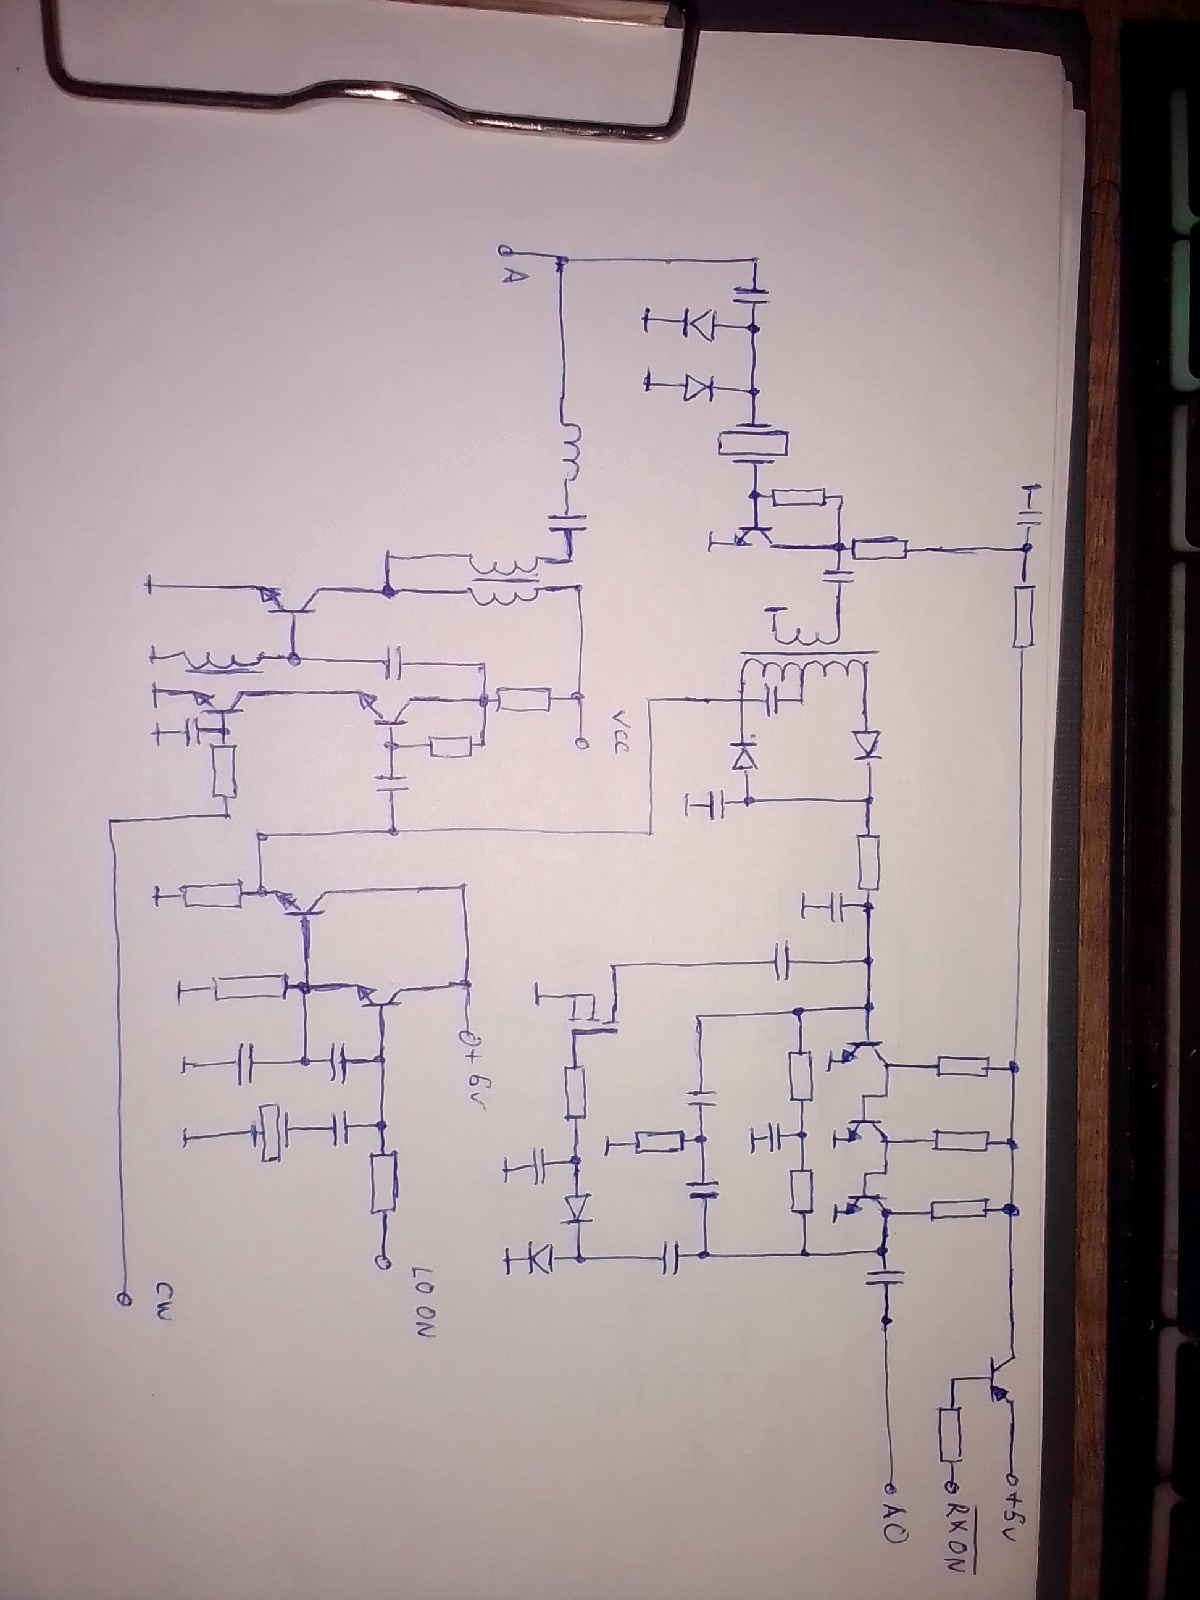 A
Vcc
+6v
LO ON
CW
+5v
RX ON
AO